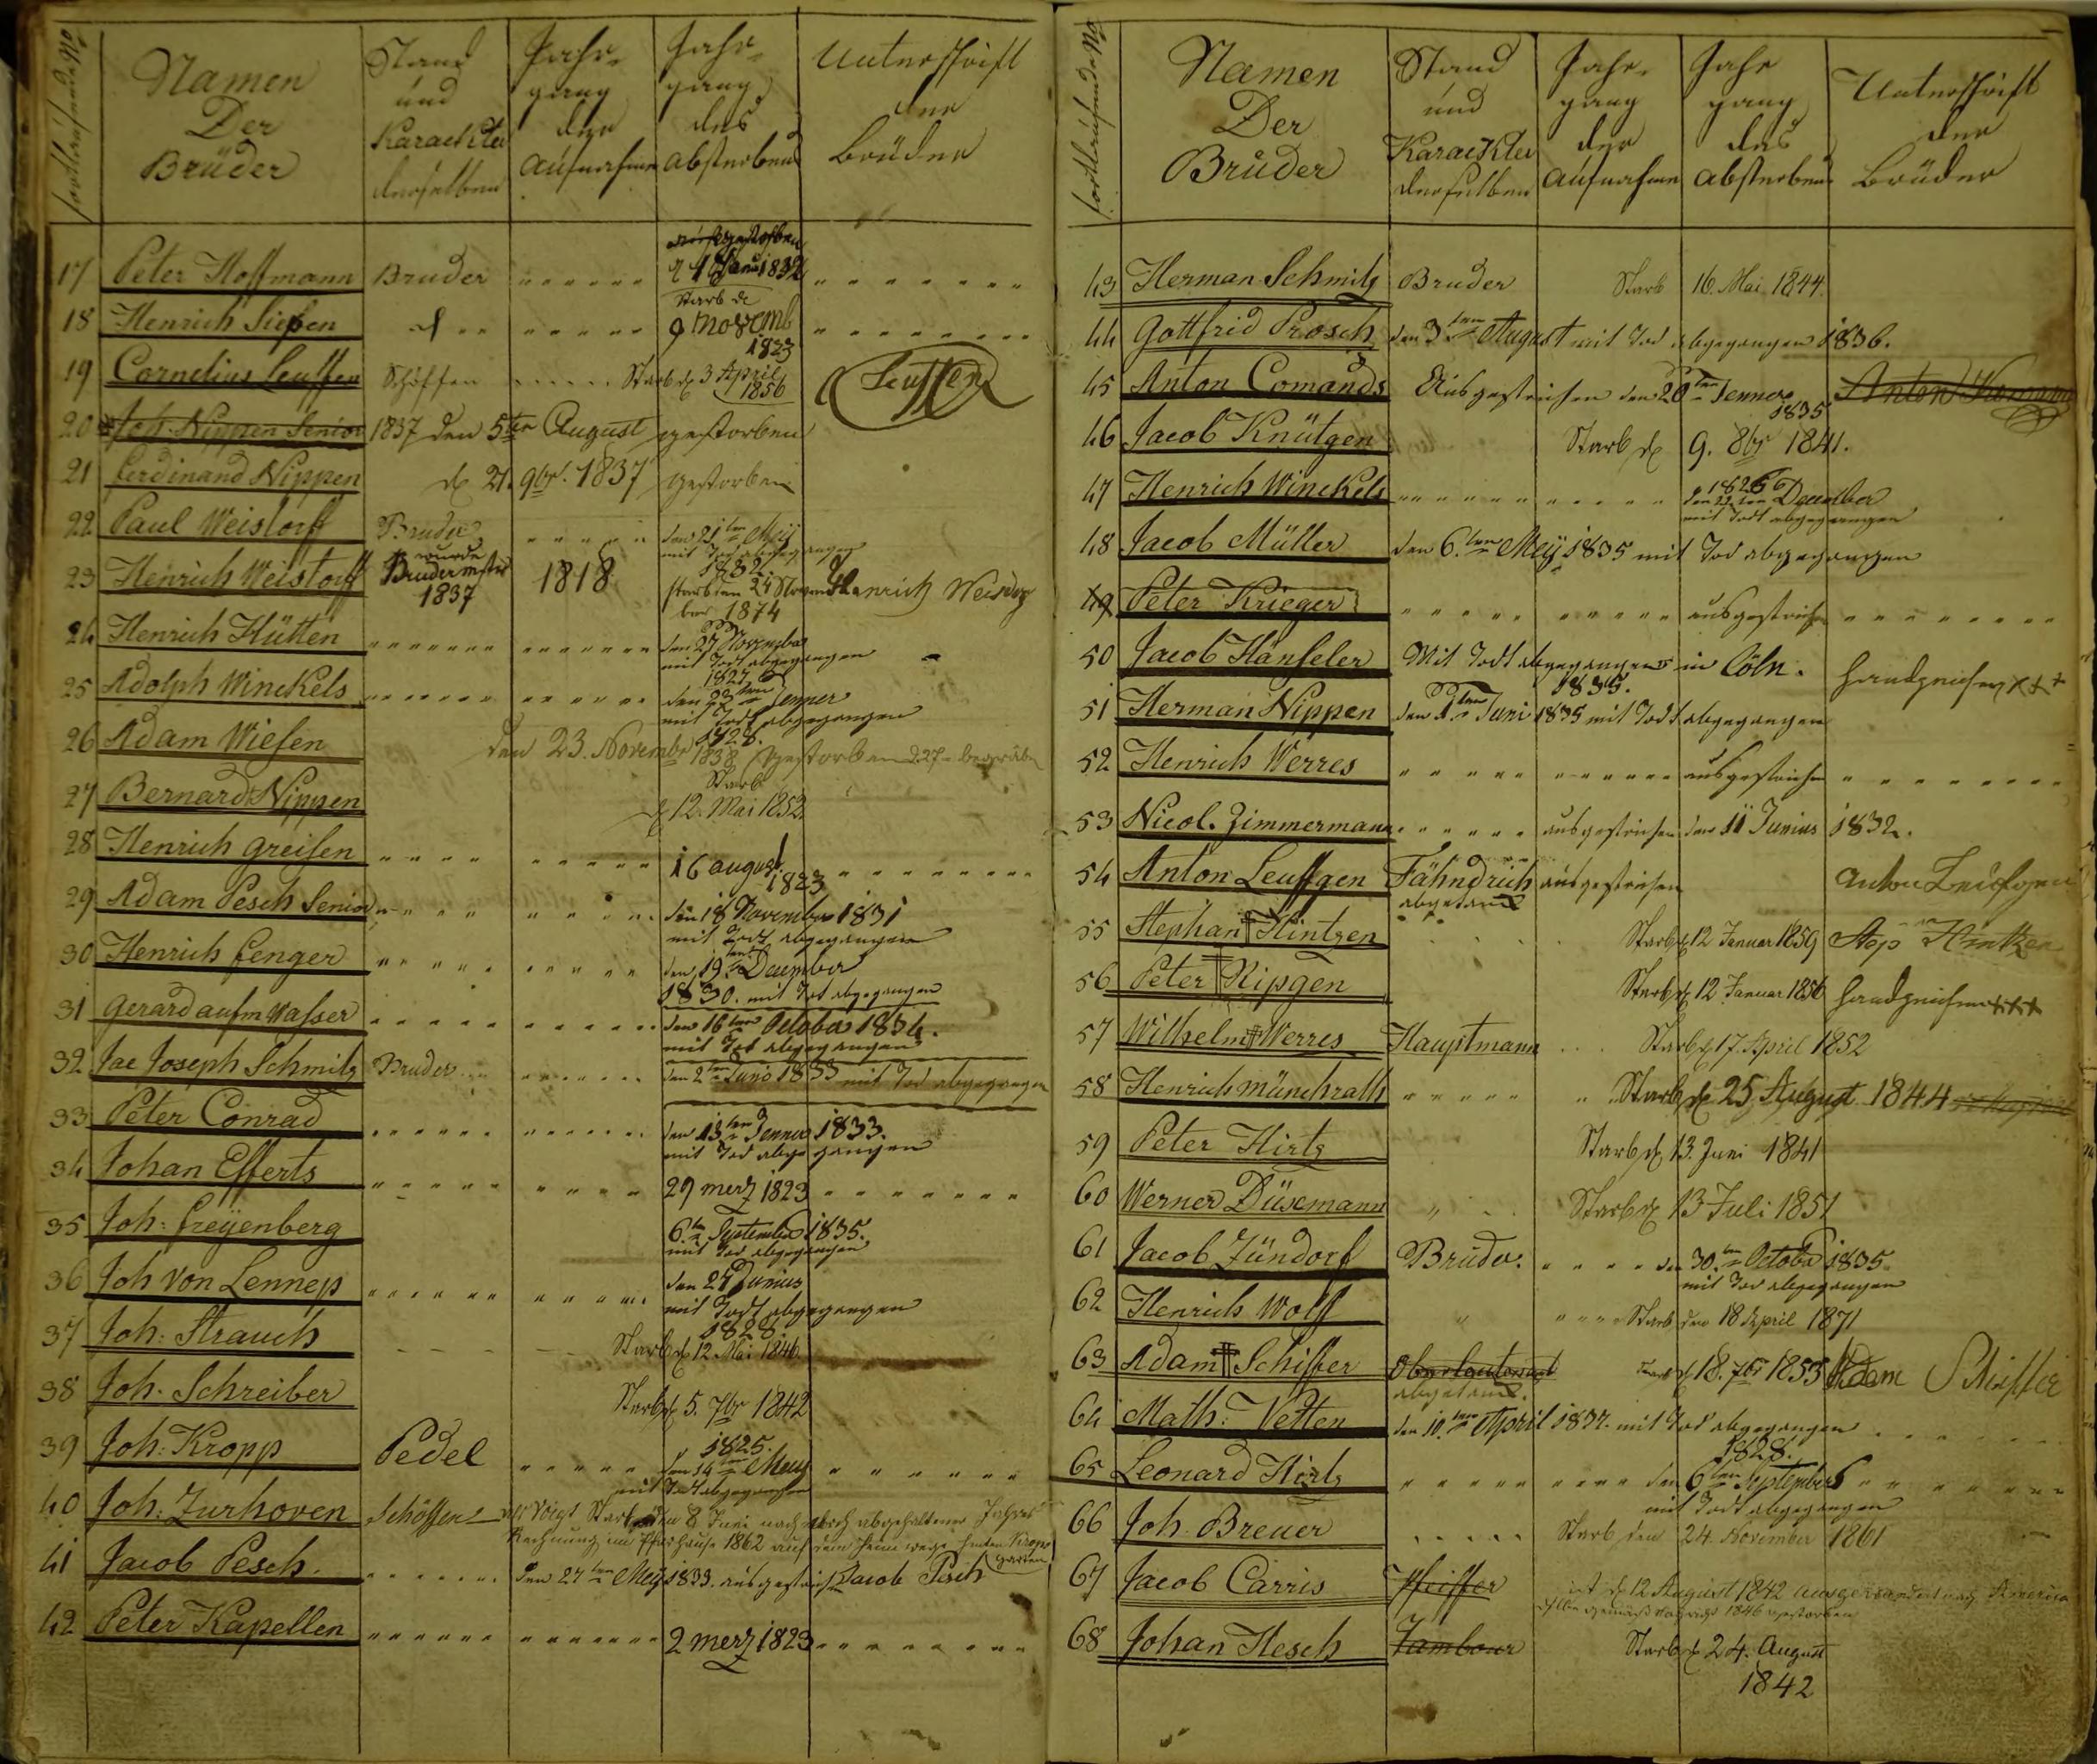 fortlaufende No
Namen
Der
Brüder
Stand
und
Karackter
derselben
Jahr-
gang
der
Aufnahme
Jahr-
gang
des
absterbens
Unterschrift
der
Brüder
17 Peter Hoffmann Bruder
1832
18 Henrich Siehsen Starb d
9 Novemb
1823
19 Cornelius Leuffen Schöffen Starb d 3 April
1856 Leuffen
20 Joh. Nippen Senior 1837 den 5ten August gestorben
21 Ferdinand Nippen d 21. 9br. 1837 gestorben
22 Paul Weistorff Bruder den 21ten Meÿ
mit Tod abgegangen
1832.
23 Henrich Weistorff wurde
Brudermstr
1837 1818 starb den 24 Novem
ber 1874 Henrich Weisdorf
24 Henrich Hütten den 27 November
mit Todt abgegangen
1827
25 Adolph Winckels den 22ten Jenner
mit Todt abgegangen
1828.
26 Adam Wiesen den 23. Novembr 1838 gestorben d 27 begraben
27 Bernard Nippen Starb
d 12. Mai 1852.
28 Henrich Greisen 16 august
1823
29 Adam Pesch Senior den 18 November 1831
mit Todt abgegangen
30 Henrich Fenger den 19ten December
1830. mit Tod abgegangen
31 Gerard aufm Wasser den 16ten October 1834.
mit Tod abgegangen
32 Jac Joseph Schmitz Bruder den 2ten Junÿ 1833 mit Tod abgegangen
33 Peter Conrad den 13ten Jenner 1833.
mit Tod abgegangen
34 Johan Efferts 29 merz 1823
35 Joh: Freÿenberg 6ten September 1835.
mit Tod abgegangen
36 Joh von Lennep den 27 Junius
mit Todt abgegangen
1828.
37 Joh: Strauch Starb d 12. Mai 1846
38 Joh. Schreiber Starb d 5. 7br 1842
39 Joh: Kropp Pedel 1825.
den 14ten Meÿ
mit Todt abgegangen
40 Joh: Zurhoven Schöffen Voigt Starb den 8 Juni nach abgehaltener Jahres
Rechnung im Pfarhause 1862 auf dem heim wege hinten Kropps
garten
41 Jacob Pesch. den 27ten Meÿ 1833. ausgestrichen Jacob Pesch
42 Peter Kapellen 2 merz 1823
fortlaufende No
Namen
Der
Brüder
Stand
und
Karackter
derselben
Jahr-
gang
der
Aufnahme
Jahr
gang
des
absterbens
Unterschrift
der
Brüder
43 Herman Schmitz Bruder Starb 16. Mai 1844.
44 Gottfrid Prosch den 3ten August mit Tod abgegangen 1836.
45 Anton Comands Ausgestrichen den 20ten Jenner
1835
46 Jacob Knütgen Starb d 9. 8br 1841.
47 Henrich Winckels 1826
den 22ten December
mit Todt abgegangen
48 Jacob Müller den 6.ten Meÿ 1835 mit Tod abgegangen
49 Peter Krieger ausgestrichen
50 Jacob Hänseler Mit Todt abgegangen in Cöln.
1835. Handzeichen xxx
51 Herman Nippen den 1ten Juni 1835 mit Todt abgegangen
52 Henrich Werres ausgestrichen
53 Nicol. Zimmermann ausgestrichen den 11 Junius 1832.
54 Anton Leuffgen Fähndrich ausgestrichen Anton Leufgen
abgetand
55 Stephan Hintzen Starb d 12 Januar 1859 Step Hintzen
56 Peter Kipgen Starb d 12 Januar 1856 Handzeichen xxx
57 Wilhelm Werres Hauptmann Starb d 17. April 1852
58 Henrich Münchrath Starb d 25 August 1844
59 Peter Hirtz Starb d 13. Juni 1841
60 Werner Düsemann Starb d 13 Juli 1851
61 Jacob Zündorf Bruder. den 30.ten October 1835
mit Tod abgegangen
62 Henrich Wolff Starb den 18 April 1871
63 Adam Schiffer Oberleutenant Starb d 18. 7br 1853 Adam Schiffer
64 Math: Vetten den 10.ten April 1837. mit Tod abgegangen
65 Leonard Hirtz 1828.
den 6ten September
mit Todt abgegangen
66 Joh. Breuer Starb den 24. November 1861
67 Jacob Carris Pfeiffer ist d 12 August 1842 ausgewandert nach America
1846 gestorben
68 Johan Hesch Tambour Starb d 24. August
1842